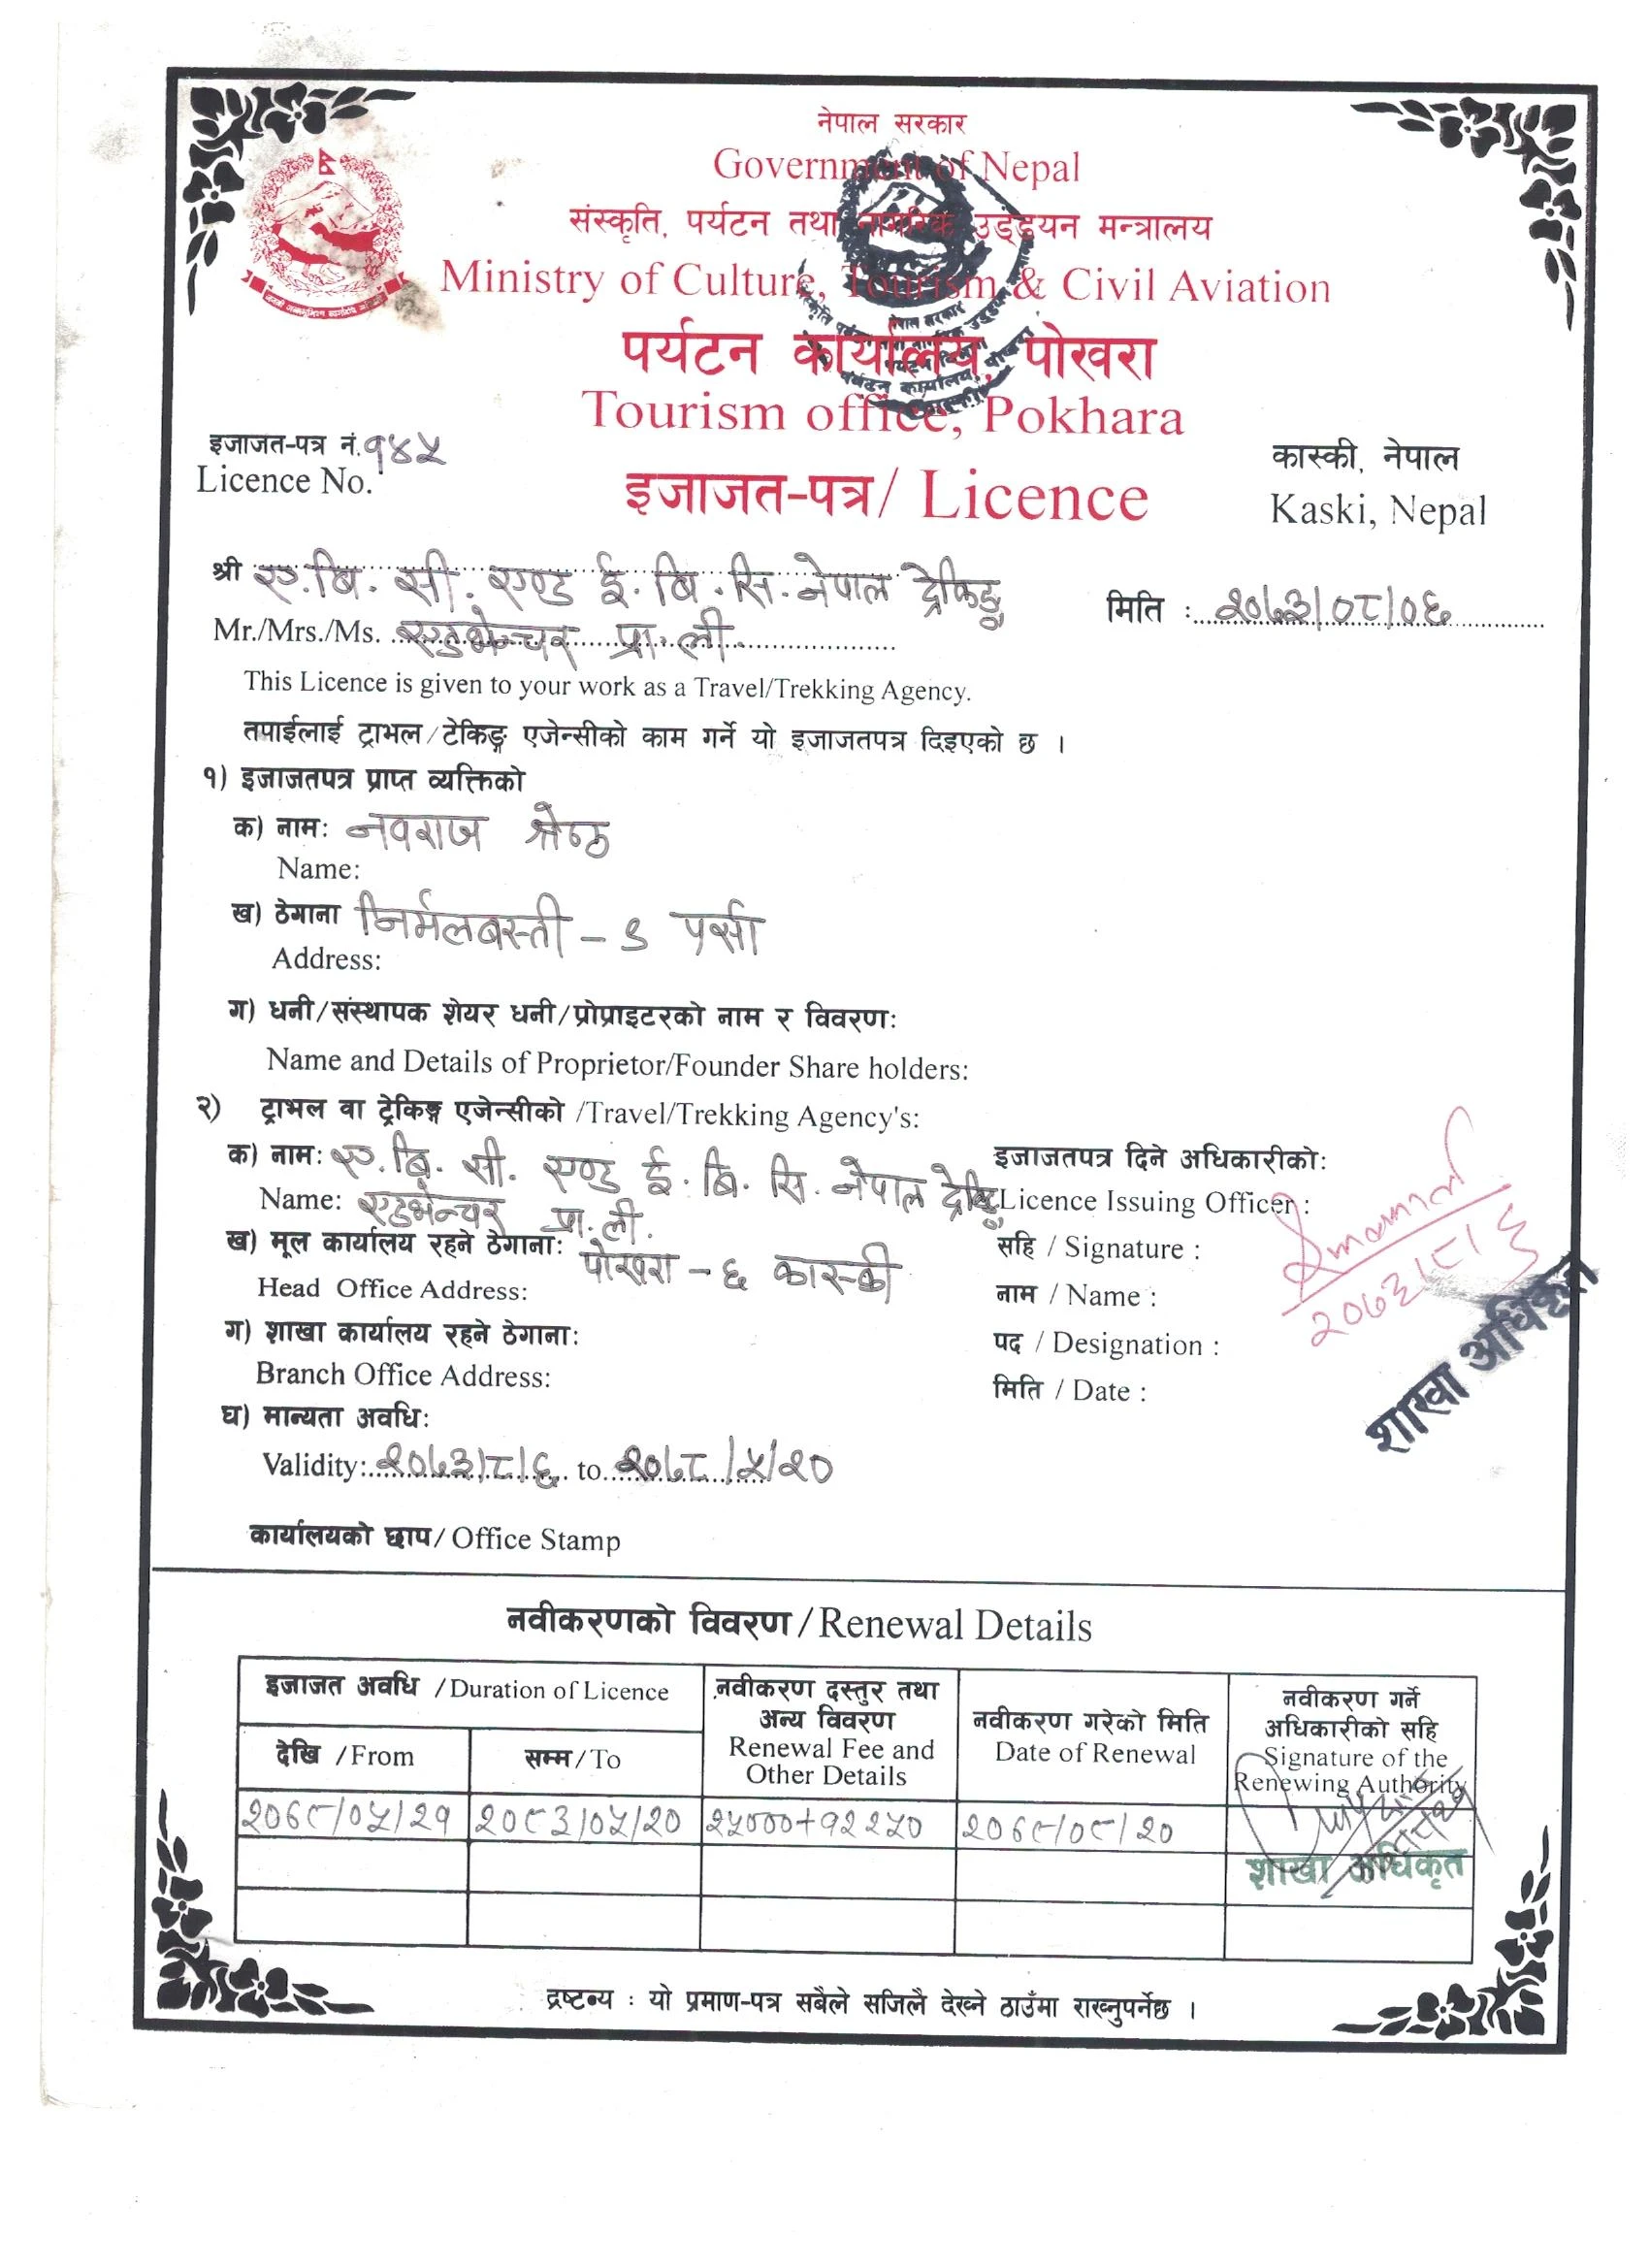 नेपाल सरकार
Government of Nepal
संस्कृति, पर्यटन तथा नागरिक उड्डयन मन्त्रालय
Ministry of Culture, Tourism & Civil Aviation
पर्यटन कार्यालय, पोखरा
Tourism office, Pokhara
इजाजत-पत्र नं. १४५
Licence No.
इजाजत-पत्र/ Licence
कास्की, नेपाल
Kaski, Nepal
श्री ए.बि. सी. एण्ड ई. बि. सि. नेपाल ट्रेकिङ्ग
Mr./Mrs./Ms. एडभेन्चर प्रा. ली.
मिति : २०७३/०८/०६
This Licence is given to your work as a Travel/Trekking Agency.
तपाईलाई ट्राभल/टेकिङ्ग एजेन्सीको काम गर्ने यो इजाजतपत्र दिइएको छ ।
१) इजाजतपत्र प्राप्त व्यक्तिको
क) नाम: नवराज श्रेष्ठ
Name:
ख) ठेगाना निर्मलबस्ती - ९ पर्सा
Address:
ग) धनी/संस्थापक शेयर धनी/प्रोप्राइटरको नाम र विवरण:
Name and Details of Proprietor/Founder Share holders:
२) ट्राभल वा ट्रेकिङ्ग एजेन्सीको /Travel/Trekking Agency's:
क) नाम: ए.बि. सी. एण्ड ई. बि. सि. नेपाल ट्रेकिङ्ग
Name: एडभेन्चर प्रा. ली.
ख) मूल कार्यालय रहने ठेगाना: पोखरा - ६ कास्की
Head Office Address:
ग) शाखा कार्यालय रहने ठेगाना:
Branch Office Address:
घ) मान्यता अवधि:
Validity: २०७३/८/६ to २०७८/५/२०
इजाजतपत्र दिने अधिकारीको:
Licence Issuing Officer :
सहि / Signature :
नाम / Name :
पद / Designation :
मिति / Date :
२०७३/८/६
शाखा अधिकृत
कार्यालयको छाप/ Office Stamp
नवीकरणको विवरण/Renewal Details
इजाजत अवधि /Duration of Licence
देखि /From
सम्म/To
नवीकरण दस्तुर तथा
अन्य विवरण
Renewal Fee and
Other Details
नवीकरण गरेको मिति
Date of Renewal
नवीकरण गर्ने
अधिकारीको सहि
Signature of the
Renewing Authority
२०७८/०५/२१ २०८३/०५/२० २५०००+१२२५० २०७८/०८/२०
शाखा अधिकृत
द्रष्टव्य : यो प्रमाण-पत्र सबैले सजिलै देख्ने ठाउँमा राख्नुपर्नेछ ।